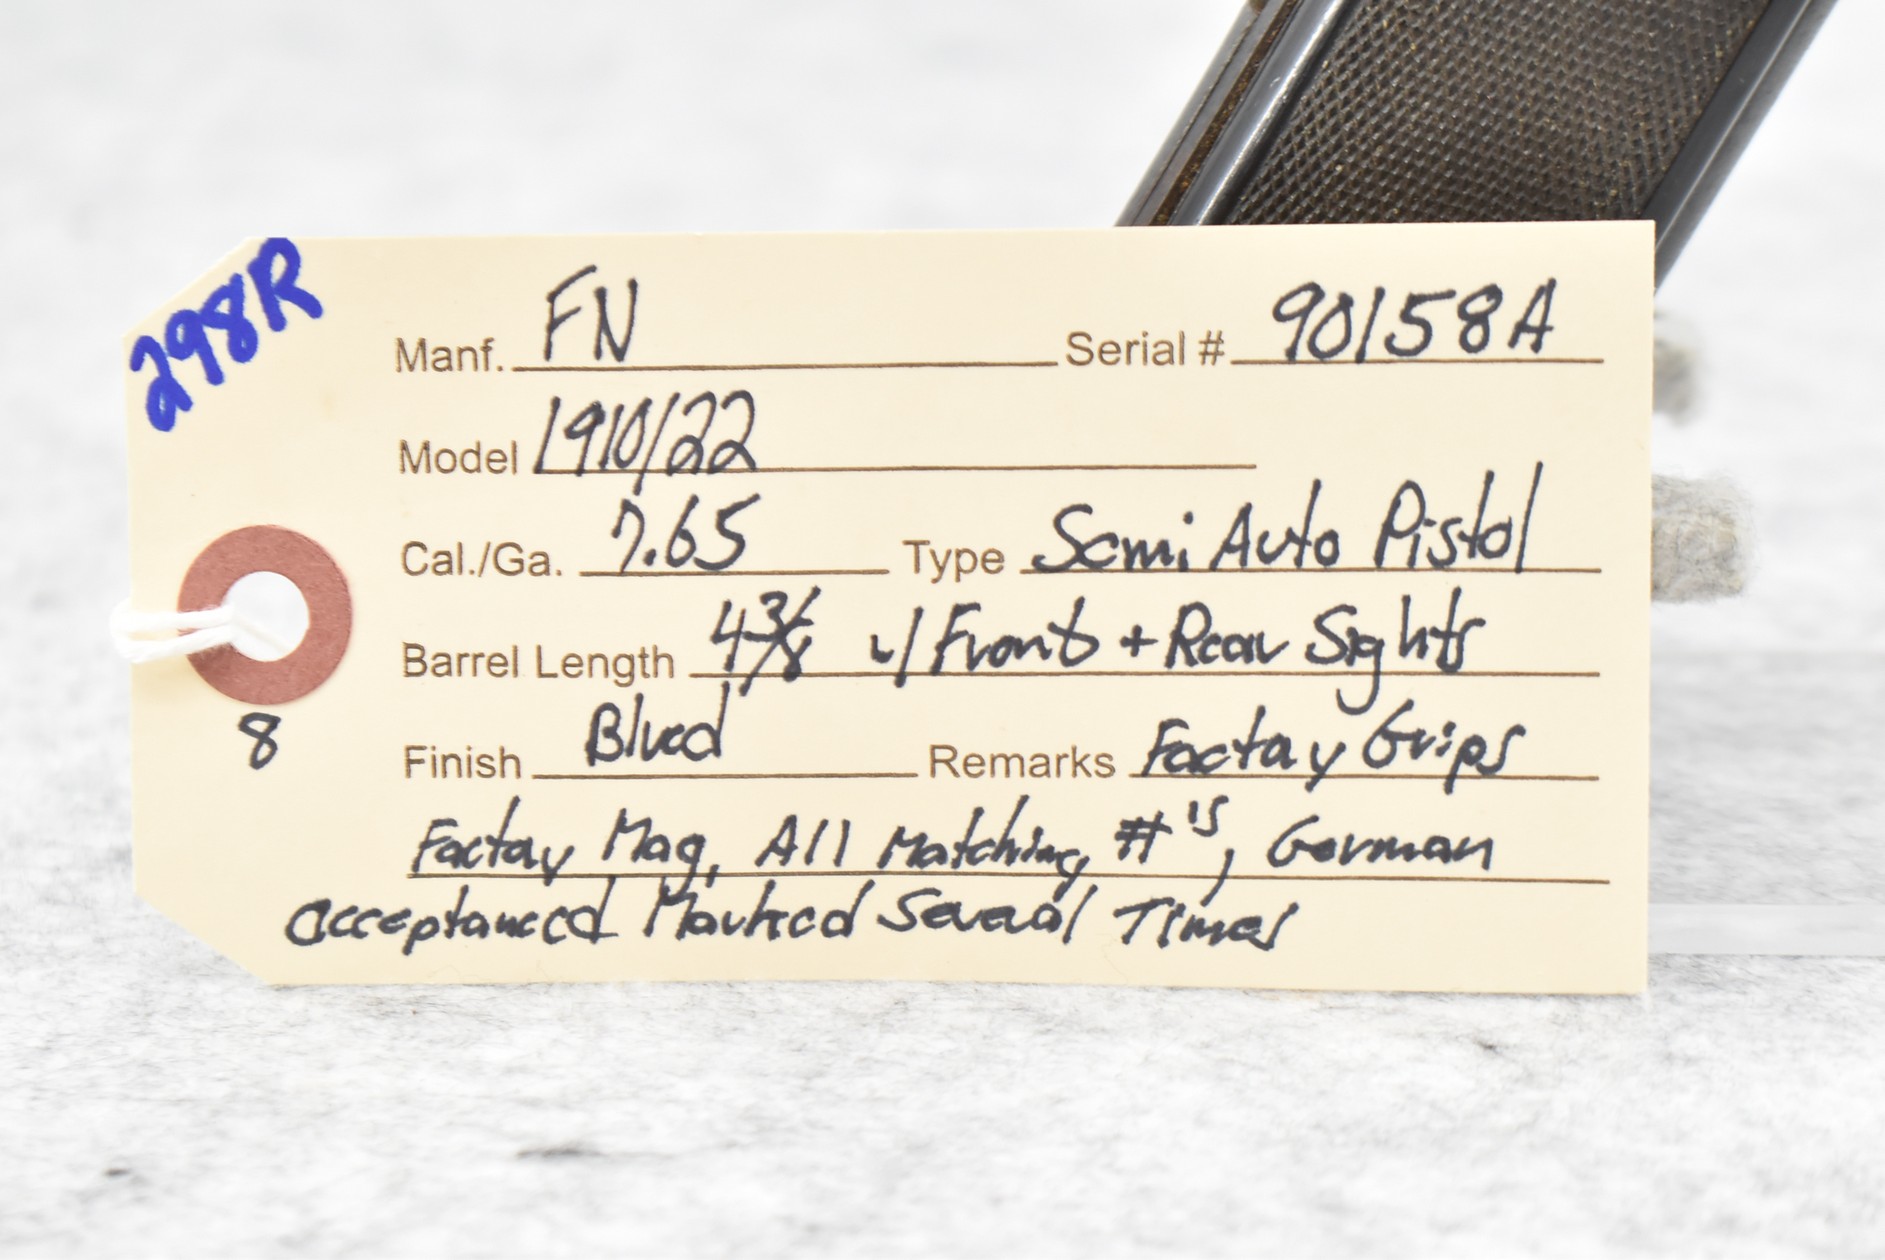 298R
Manf. FN Serial # 90158A
Model 1910/22
Cal./Ga. 7.65 Type Semi Auto Pistol
Barrel Length 4 3/8 w/ Front + Rear Sights
8
Finish Blued Remarks Factory Grips
Factory Mag, All Matching #'s, German
acceptanced Marked Several Times